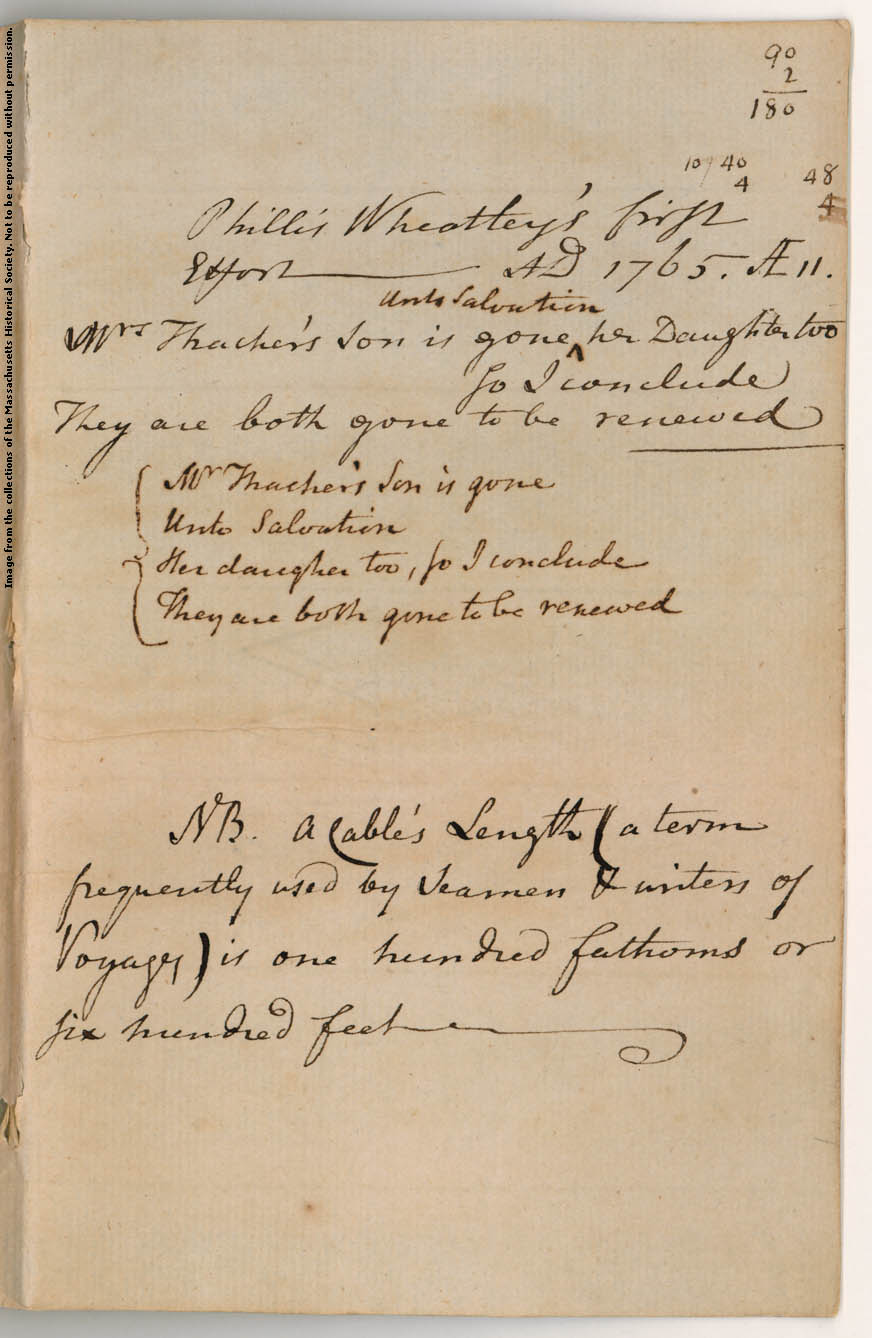 Image from the collections of the Massachusetts Historical Society. Not to be reproduced without permission.
90
2
180
10 40
4
48
4
Phillis Wheatley's first
Effort AD 1765. Æ 11.
Unto Salvation
Mrs Thacher's Son is gone ^ her Daughter too
so I conclude
They are both gone to be renewed
Mrs Thacher's Son is gone
Unto Salvation
Her daugher too, so I conclude
They are both gone to be renewed
NB. a Cable's Length (a term
frequently used by Seamen & writers of
Voyages) is one hundred fathoms or
six hundred feet